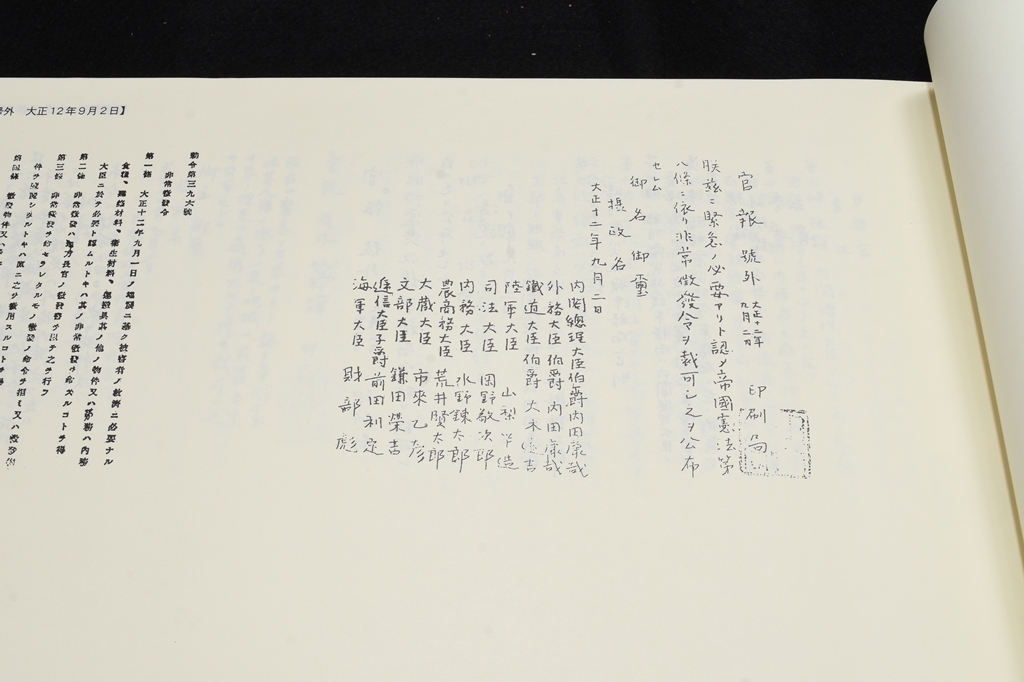 号外 大正12年9月2日】
官報 號外 大正十二年九月二日 印刷局
朕玆ニ緊急ノ必要アリト認メ帝國憲法第
八條ニ依リ非常徴發令ヲ裁可シ之ヲ公布
セシム
御名御璽
攝政名
大正十二年九月二日
内閣總理大臣伯爵内田康哉
外務大臣伯爵内田康哉
鐵道大臣伯爵大木遠吉
陸軍大臣 山梨半造
司法大臣 岡野敬次郎
内務大臣 水野錬太郎
農商務大臣 荒井賢太郎
大蔵大臣 市來乙彦
文部大臣 鎌田榮吉
逓信大臣子爵前田利定
海軍大臣 財部彪
勅令第三九六號
非常徴發令
第一條 大正十二年九月一日ノ地震ニ基ク被害者ノ救濟ニ必要ナル
食糧、建築材料、衛生材料、運搬具其ノ他ノ物件又ハ勞務ハ内務
大臣ニ於テ必要ト認ムルトキハ其ノ非常徴發ヲ命スルコトヲ得
第二條 非常徴發ハ地方長官ノ徴發書ヲ以テ之ヲ行フ
第三條 非常徴發ヲ命セラレタルモノ徴發ノ命令ヲ拒ミ又ハ徴發物
件ヲ藏匿シタルトキハ直ニ之ヲ徴用スルコトヲ得